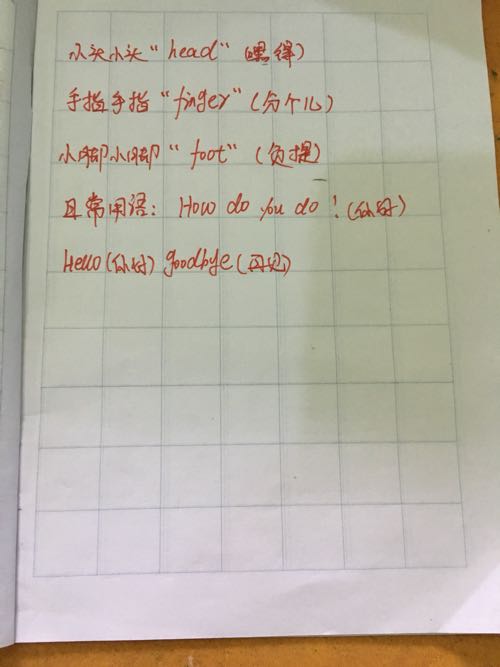 小头小头“head”(黑得)
手指手指“finger”(分个儿)
小脚小脚“foot”(负提)
日常用语: How do you do!(你好)
Hello(你好) goodbye(再见)